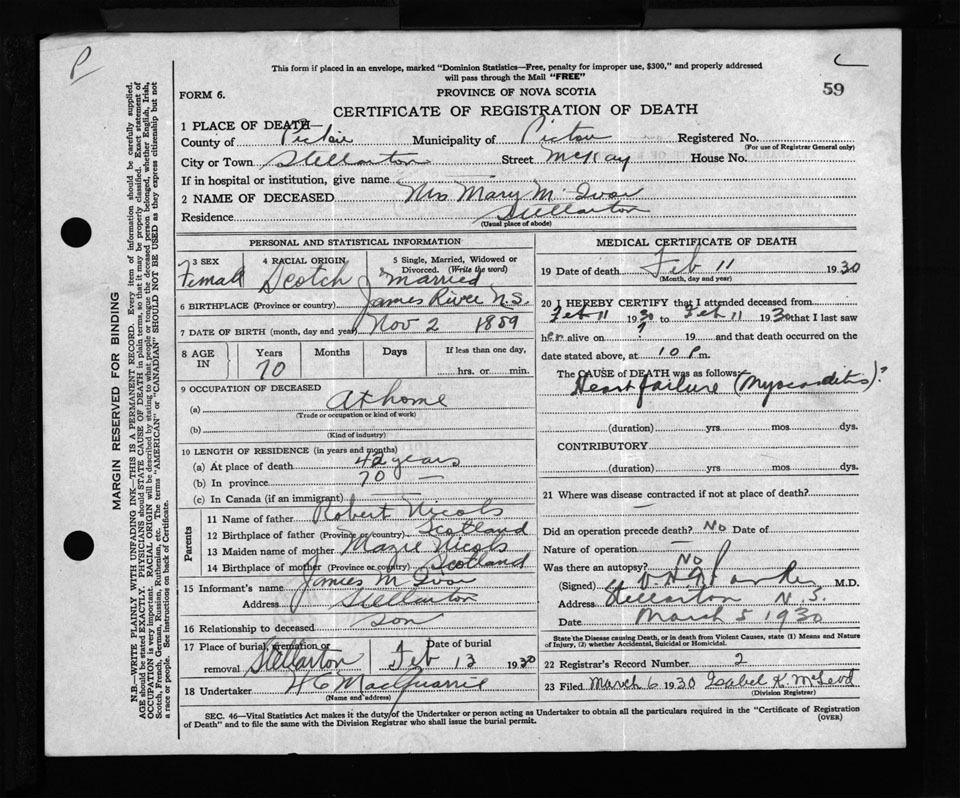 P
This form if placed in an envelope, marked "Dominion Statistics—Free, penalty for improper use, $300," and properly addressed
will pass through the Mail "FREE"
FORM 6.
PROVINCE OF NOVA SCOTIA
59
CERTIFICATE OF REGISTRATION OF DEATH
1 PLACE OF DEATH—
County of Pictou Municipality of Pictou Registered No.
(For use of Registrar General only)
City or Town Stellarton Street McKay House No.
If in hospital or institution, give name
2 NAME OF DECEASED Mrs Mary McIvor
Residence Stellarton
(Usual place of abode)
PERSONAL AND STATISTICAL INFORMATION
3 SEX Female
4 RACIAL ORIGIN Scotch
5 Single, Married, Widowed or Divorced. (Write the word) Married
6 BIRTHPLACE (Province or country) James River N.S.
7 DATE OF BIRTH (month, day and year) Nov 2 1859
8 AGE IN Years Months Days If less than one day,
70 hrs. or min.
9 OCCUPATION OF DECEASED
(a) At home
(Trade or occupation or kind of work)
(b)
(Kind of industry)
10 LENGTH OF RESIDENCE (in years and months)
(a) At place of death 42 years
(b) In province 70 —
(c) In Canada (if an immigrant)
Parents
11 Name of father Robert Nicols
12 Birthplace of father (Province or country) Scotland
13 Maiden name of mother Nicols
14 Birthplace of mother (Province or country) Scotland
15 Informant's name James McIvor
Address Stellarton
16 Relationship to deceased son
17 Place of burial, cremation or removal Stellarton Date of burial Feb 13 1930
18 Undertaker H C MacQuarrie
(Name and address)
MEDICAL CERTIFICATE OF DEATH
19 Date of death Feb 11 1930
(Month, day and year)
20 I HEREBY CERTIFY that I attended deceased from
Feb 11 1930 to Feb 11 1930 that I last saw
her alive on ? 19 and that death occurred on the
date stated above, at 10 P m.
The CAUSE of DEATH was as follows:
Heart failure (Myocarditis)?
(duration) yrs mos dys.
CONTRIBUTORY
(duration) yrs mos dys.
21 Where was disease contracted if not at place of death?
—
Did an operation precede death? No Date of
Nature of operation —
Was there an autopsy? No
(Signed) M.D.
Address Stellarton N.S.
Date March 5 1930
State the Disease causing Death, or in death from Violent Causes, state (1) Means and Nature
of Injury, (2) whether Accidental, Suicidal or Homicidal.
22 Registrar's Record Number 2
23 Filed March 6 1930 Isabel K. McLeod
(Division Registrar)
SEC. 46—Vital Statistics Act makes it the duty of the Undertaker or person acting as Undertaker to obtain all the particulars required in the "Certificate of Registration
of Death" and to file the same with the Division Registrar who shall issue the burial permit.
(OVER)
MARGIN RESERVED FOR BINDING
N.B.—WRITE PLAINLY WITH UNFADING INK—THIS IS A PERMANENT RECORD. Every item of information should be carefully supplied.
AGE should be stated EXACTLY. PHYSICIANS should STATE CAUSE OF DEATH in plain terms, so that it may be properly classified. Exact statement of
OCCUPATION is very important. RACIAL ORIGIN will be described by stating to what people or tongue the deceased person belonged, whether English, Irish,
Scotch, French, German, Russian, Ruthenian, etc. The terms "AMERICAN" or "CANADIAN" SHOULD NOT BE USED as they express citizenship but not
a race or people. See instructions on back of Certificate.